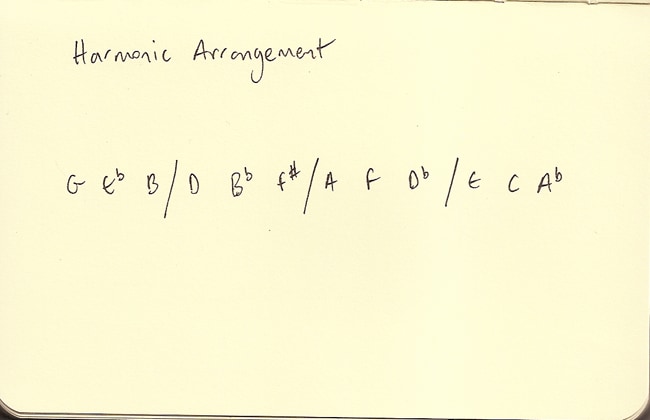 Harmonic Arrangement
G E♭ B / D B♭ F# / A F D♭ / E C A♭